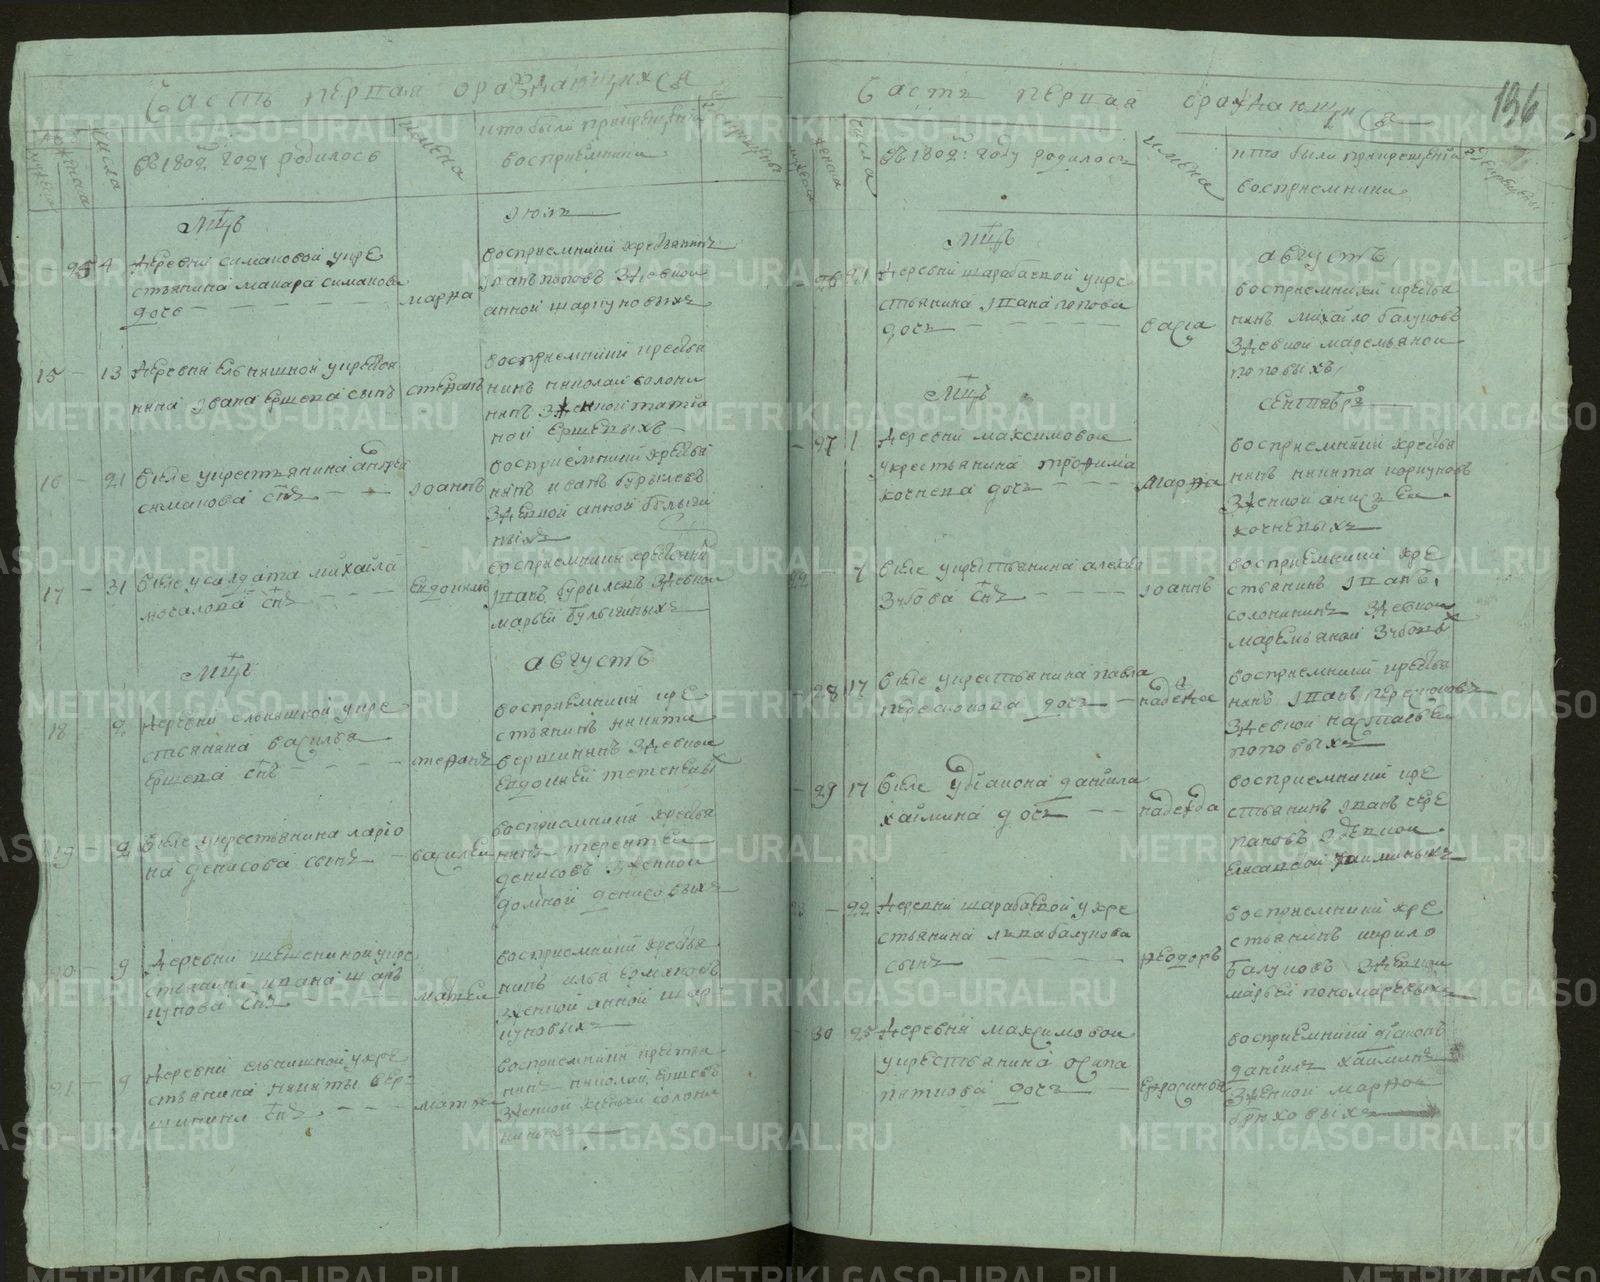 Часть первая ораждающихся
мужеска
женска
числа
Въ 1802 году родилось
имена
кто были при крещении
восприемники
Мцъ
июль
25 4 деревни симановой у кре
стьянина макара симанова
дочь
марѳа
восприемники крестьянинъ
иванъ поповъ з девкой
анной шаркуновыхъ
15 - 13 деревни ельнишной у крестья
нина ивана ершева сынъ
стефанъ
восприемники крестья
нинъ николай солони
нинъ з женкой татиа
ной ершевыхъ
16 - 21 в селе у крестьянина андрея
симанова снъ
иоаннъ
восприемники крестья
нинъ иванъ бурылевъ
з девкой анной булыги
ныхъ
17 - 31 в селе у салдата михаила
мосалова снъ
евдокимъ
восприемники крестьянинъ
иванъ бурылевъ з девкой
марьей булыгиныхъ
Мцъ
августъ
18 - 2 деревни ельнишной у кре
стьянина василья
ершева снъ
стефанъ
восприемники кре
стьянинъ никита
вершининъ з девкой
евдокией тетеневыхъ
19 - 2 в селе у крестьянина ларио
на денисова сынъ
василей
восприемники крестья
нинъ терентей
денисовъ з женкой
домной денисовыхъ
20 - 9 деревни щешениной у кре
стьянина ивана шар
кунова снъ
матѳеи
восприемники крестья
нинъ илья ермаковъ
з женкой анной шар
куновыхъ
21 - 9 деревни ельнишной у кре
стьянина никиты вер
шинина снъ
матѳеи
восприемники крестья
нинъ николай ершевъ
з женкой ксеньей солони
ниныхъ
Часть первая ораждающихся
136
мужеска
женска
числа
Въ 1802 году родилось
имена
кто были при крещении
восприемники
Мцъ
августъ
26 21 деревни шарабаской у кре
стьянина ивана попова
дочь
васса
восприемники крестья
нинъ михайло балуновъ
з девкой маремьяной
поповыхъ
Мцъ
сентябрь
27 1 деревни максимовой
у крестьянина трофима
кочнева дочь
марѳа
восприемники крестья
нинъ никита коркуновъ
з женкой анисьей
кочневыхъ
22 - 7 в селе у крестьянина алексея
зубова снъ
иоаннъ
восприемники кре
стьянинъ иванъ
солонининъ з девкой
маремьяной зубовыхъ
28 17 в селе у крестьянина павла
дочь
надежда
восприемники крестья
нинъ иванъ
з девкой настасьей
поповыхъ
29 17 в селе у дьякона данила
хаймина дочь
надежда
восприемники кре
стьянинъ иванъ чере
пановъ з девкой
елисавеой хайминыхъ
23 - 22 деревни шарабаской у кре
стьянина льва балунова
сынъ
ѳеодоръ
восприемники кре
стьянинъ кирило
балуновъ з девкой
марьей пономаревыхъ
30 25 деревни максимовой
у крестьянина осипа
пяткова дочь
евфросинья
восприемники дьяконъ
данилъ хайминъ
з женкой марѳой
брюховыхъ